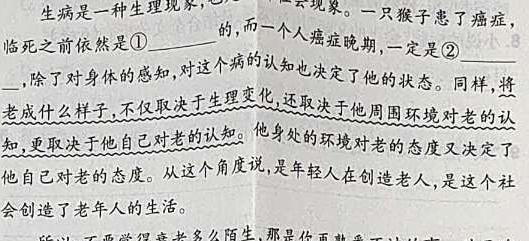 生病是一种生理现象,也 会现象。一只猴子患了癌症,
临死之前依然是①______的,而一个人癌症晚期,一定是②______
__,除了对身体的感知,对这个病的认知也决定了他的状态。同样,将
老成什么样子,不仅取决于生理变化,还取决于他周围环境对老的认
知,更取决于他自己对老的认知。他身处的环境对老的态度又决定了
他自己对老的态度。从这个角度说,是年轻人在创造老人,是这个社
会创造了老年人的生活。